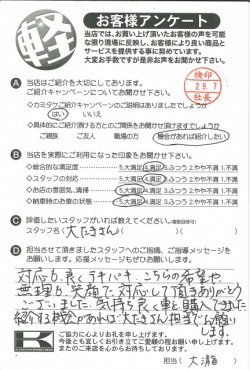 軽
お客様アンケート
当店では、お買い上げ頂いたお客様の声を可能な限り現場に反映し、お客様により良い商品とサービスを提供する事に努めています。
大変お手数ですが是非お声をお聞かせ下さい。
検印
29.9.7
社長
A 当店はご紹介を大切にしております。
ご紹介キャンペーンについてお聞かせ下さい。
はい いいえ
ご親族 ご友人 職場の方 機会があれば紹介したい
B 当店を実際にご利用になった印象をお聞かせ下さい。
◇総合的な満足度 5.大満足 4.満足 3.ふつう 2.やや不満 1.不満
◇スタッフの対応 5.大満足 4.満足 3.ふつう 2.やや不満 1.不満
◇お店の雰囲気、清掃 5.大満足 4.満足 3.ふつう 2.やや不満 1.不満
◇納車時のお車の状態 5.大満足 4.満足 3.ふつう 2.やや不満 1.不満
C 評価したいスタッフがいれば教えてください。
スタッフ名(大たきさん)
D 担当させて頂きましたスタッフへのご指摘、ご指導メッセージをお願いします。応援メッセージもお待ちしております。
対応も良くテキパキ、こちらの希望や
無理も笑顔で対応して頂きありがとう
ございました。気持ち良く車を購入できました
紹介する機会があれば大たきさん担当でお願い
します。
ご協力に心よりお礼を申し上げます。
今後とも宜しくお引き立てご愛顧の程お願い申し上げます。
またのご来店を心からお待ちしております。
担当( 大瀧 )